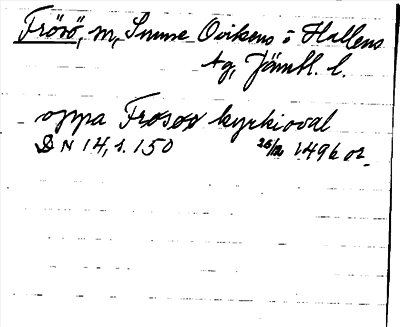 Frösö, m, Sunne Ovikens o Hallens
tg, Jämtl. l.
oppa Frosox kyrkioval
DN 14, s. 150 25/12 1496 or.